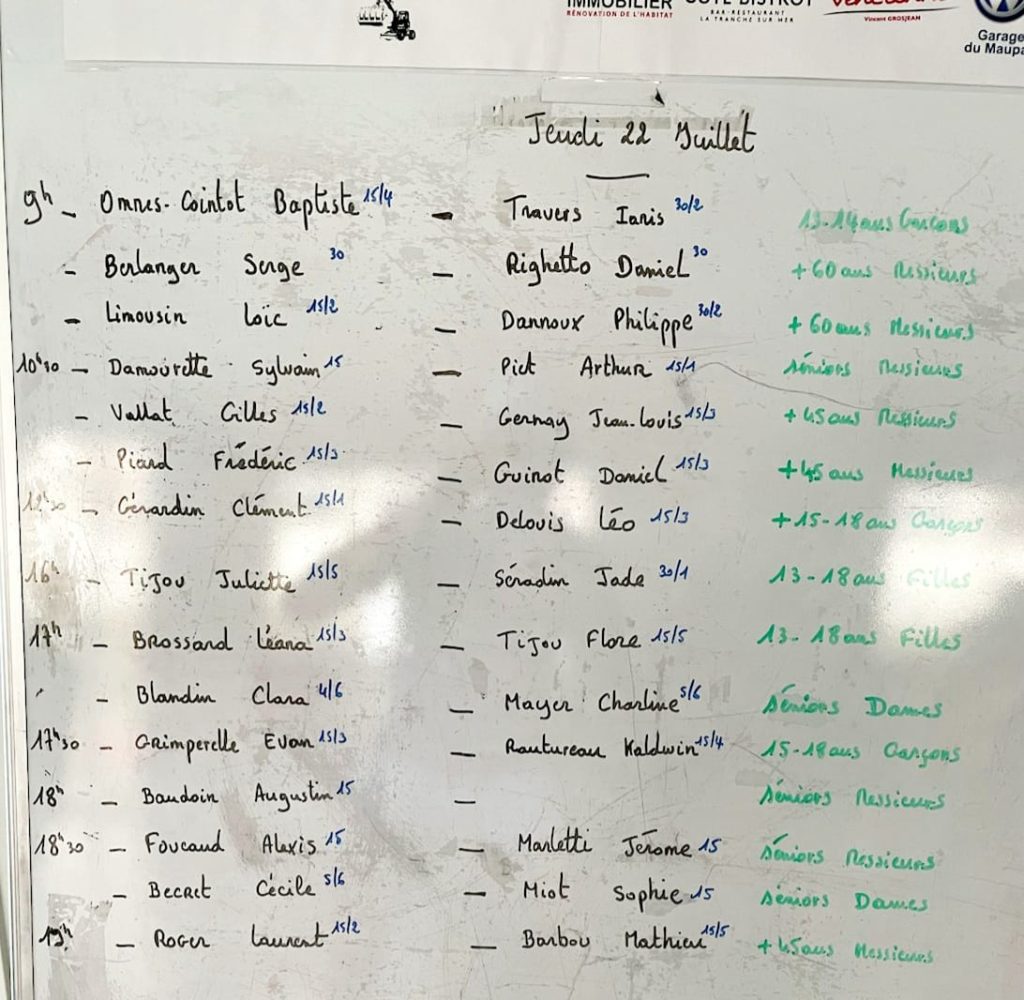 IMMOBILIER
RÉNOVATION DE L'HABITAT
CÔTÉ BISTROT
BAR-RESTAURANT
LA TRANCHE SUR MER
Vincent GROSJEAN
Garage
du Maupa
Jeudi 22 Juillet
9h - Omnes-Cointot Baptiste 15/4 - Travers Ianis 30/2 13-14 ans Garçons
- Berlanger Serge 30 - Righetto Daniel 30 +60 ans Messieurs
- Limousin Loïc 15/2 - Dannoux Philippe 30/2 +60 ans Messieurs
10h30 - Damourette Sylvain 15 - Piet Arthur 15/1 Séniors Messieurs
- Vallat Gilles 15/2 - Gernay Jean-Louis 15/3 +45 ans Messieurs
- Piard Frédéric 15/3 - Guinot Daniel 15/3 +45 ans Messieurs
12h30 - Gérardin Clément 15/1 - Delouis Léo 15/3 +15-18 ans Garçons
16h - Tijou Juliette 15/5 - Séradin Jade 30/1 13-18 ans Filles
17h - Brossard Léana 15/3 - Tijou Flore 15/5 13-18 ans Filles
- Blandin Clara 4/6 - Mayer Charline 5/6 Séniors Dames
17h30 - Grimperelle Evan 15/3 - Rautureau Kaldwin 15/4 15-18 ans Garçons
18h - Baudoin Augustin 15 - Séniors Messieurs
18h30 - Foucaud Alexis 15 - Marletti Jérome 15 Séniors Messieurs
- Becret Cécile 5/6 - Miot Sophie 15 Séniors Dames
19h - Roger Laurent 15/2 - Barbou Mathieu 15/5 +45 ans Messieurs